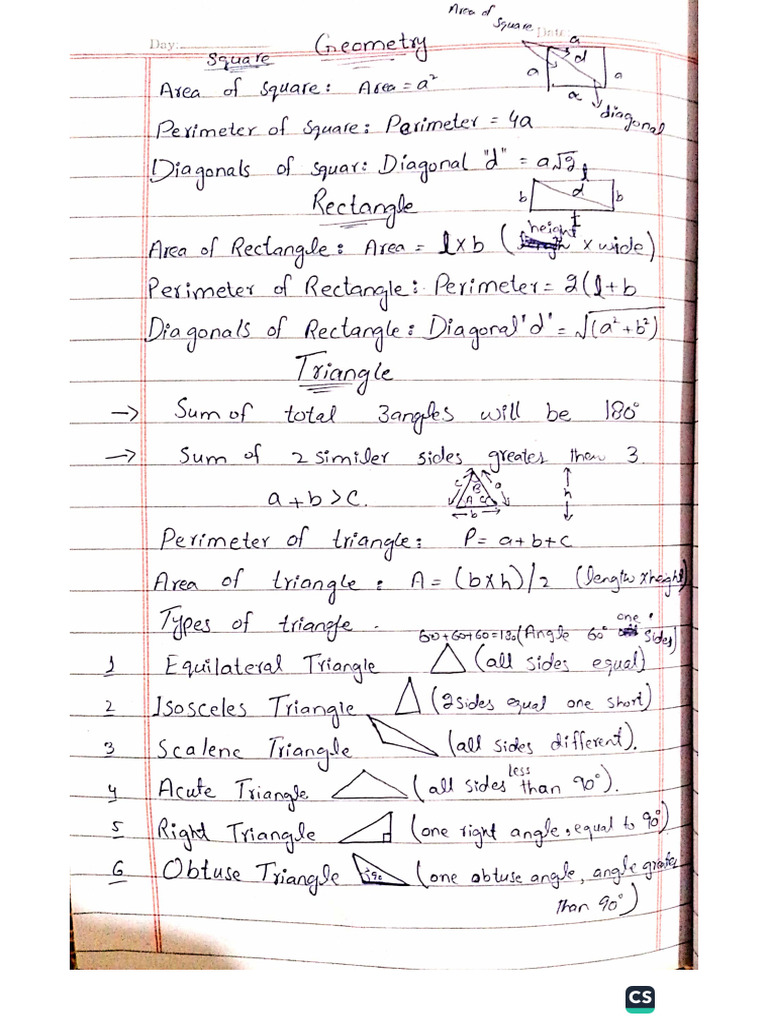 Area of
Square
Day: Date:
Geometry
Square
a
a d a
a
diagonal
Area of square: Area = a²
Perimeter of square: Parimeter = 4a
Diagonals of squar: Diagonal "d" = a√2
Rectangle
l
b d b
l
Area of Rectangle: Area = l×b ( height × wide)
Perimeter of Rectangle: Perimeter = 2(l+b
Diagonals of Rectangle: Diagonal 'd' = √(a²+b²)
Triangle
→ Sum of total 3angles will be 180°
→ Sum of 2 similer sides greates then 3.
a+b>c.
c B a
A C
b
h
Perimeter of triangle: P= a+b+c
Area of triangle: A= (b×h)/2 (length×height)
Types of triangle.
60+60+60=180(Angle 60° one sides)
1 Equilateral Triangle (all sides equal)
2 Isosceles Triangle (2sides equal one short)
3 Scalene Triangle (all sides different).
4 Acute Triangle (all sides less than 90°).
5 Right Triangle (one right angle, equal to 90°)
6 Obtuse Triangle 90 (one obtuse angle, angle greater
than 90°)
CS